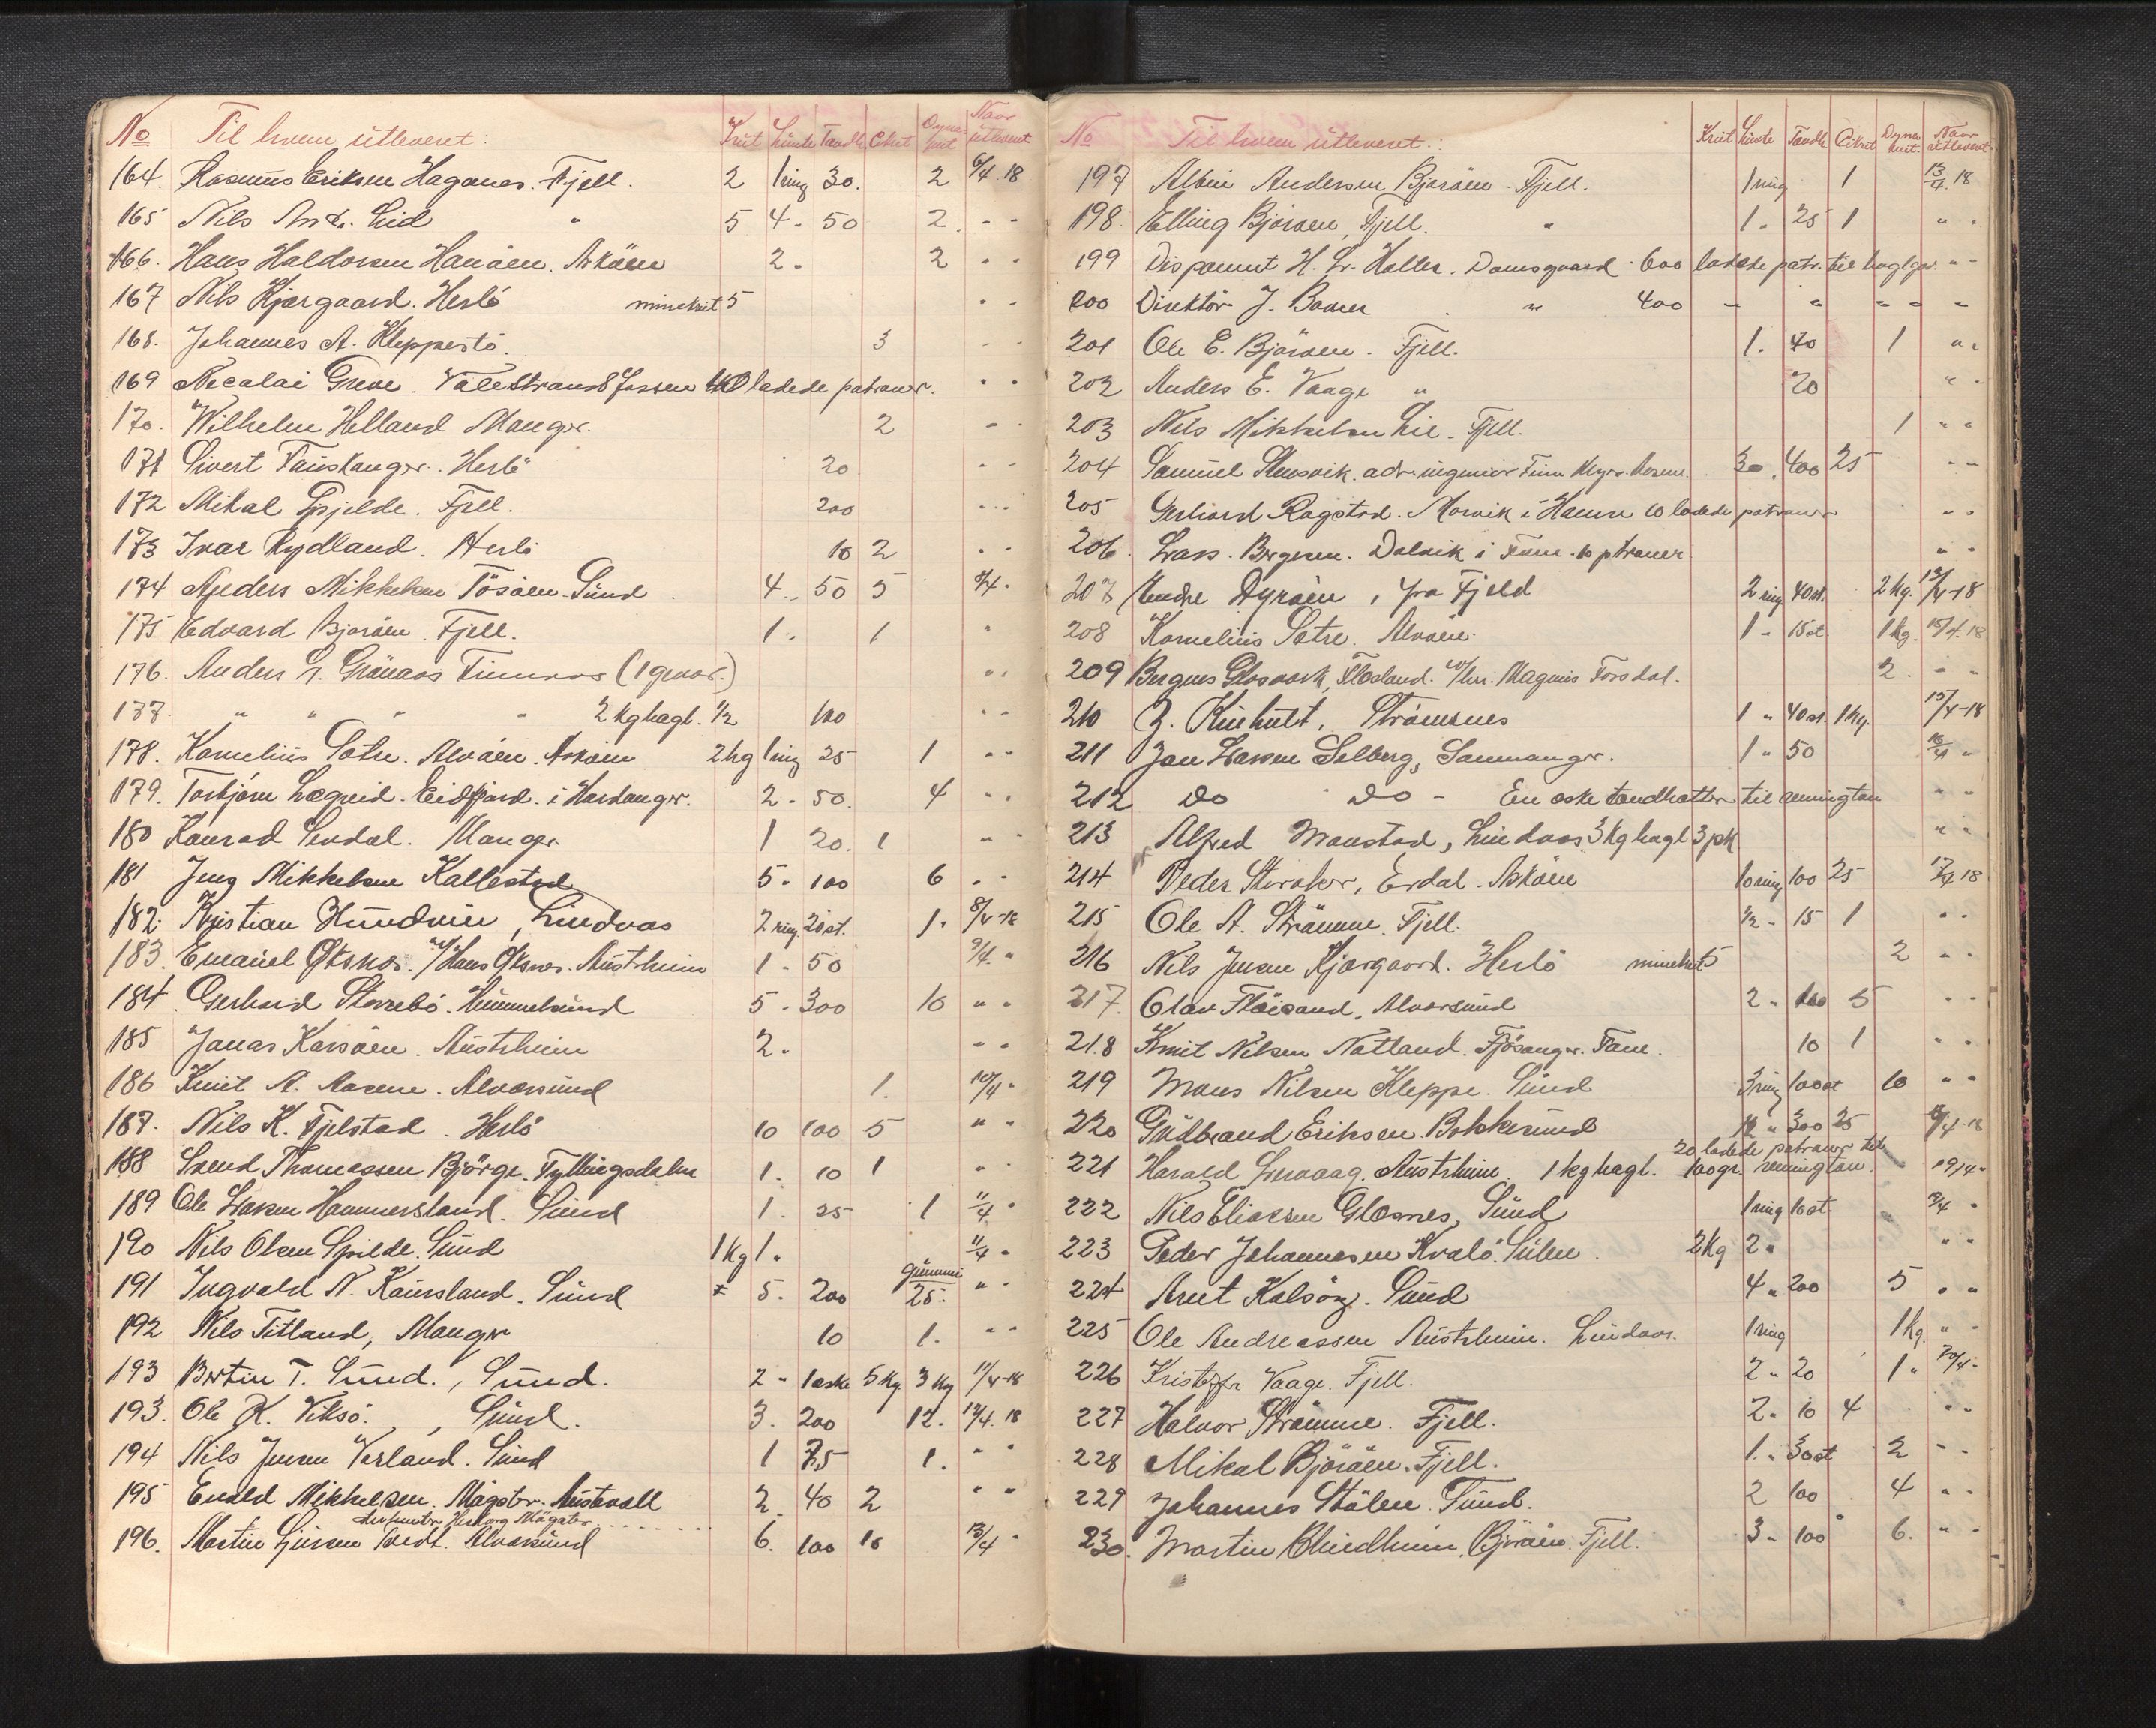 No Til hvem utleveret: Krut Lunte Tændh. Cikrit Dynamit Naar utleveret
164. Rasmus Eriksen Haganes. Fjell. 2 1 ring 30. 2 6/4. 18
165 Nils And. Lid " 5 4 - 50 2. - -
166. Hans Haldorsen Hanøen. Askøen 2 - 2 - -
167 Nils Kjærgaard. Herlö minekrut 5 - -
168. Johannes A. Kleppestö. 3 - -
169 Nicolai Greve. Valestrandsfossen 40 ladede patroner. - -
170. Wilhelm Helland Manger. 2 - -
171 Sivert Fauskanger. Herlö 20 - -
172 Mikal Gjelde. Fjell. 200 - -
173 Ivar Rydland. Herlö 10 2 - -
174 Anders Mikkelsen Tösöen. Sund 4 - 50 5 8/4 -
175 Edvard Bjoröen. Fjell. 1 - 1 "
176. Anders L. Grönaas Fimnes (1 gevær.) - -
177. " " " " 2 kg hagl. 1/2 100 - -
178. Kornelius Sotre. Alvöen. Askøen 2 kg 1 ring 25 1 - -
179. Torbjørn Lægreid. Eidfjord. i Hardanger. 2 - 50. 4 - -
180 Konrad Sördal. Manger 1 20. 1 - -
181 Jens Mikkelsen Kallestad 5 - 100 6 - -
182. Kristian Hundvin, Lindaas 2 ring. 20 st. 1. 8/4-18
183. Emanuel Oksnes. v/ Hans Oksnes. Austrheim 1 - 50 9/4. "
184. Gerhard Storebö. Hummelsund 5 - 300 10 " "
185 Jonas Karsöen. Austrheim 2 - - -
186 Knut A. Aasene. Alversund 1. 10/4 "
187. Nils K. Fjelstad. Herlö 10 100 5 " "
188 Svend Thomassen Björge. Fyllingsdalen 1. 10 1 - -
189 Ole Larsen Hammersland. Sund 1. 25 1 11/4 "
190 Nils Olsen Spilde. Sund 1 kg 1. 11/4 "
191 Ingvald N. Kausland. Sund 5. 200 gummi 25. " "
192 Nils Titland, Manger 10 1. " "
193 Bertin T. Sund., Sund. 2 - 1 æske 5 kg 3 kg 11/4-18
193. Ole K. Viksö., Sund. 3. 200 12. 12/4. 18
194 Nils Jensen Vorland. Sund 1 75 1. " "
195 Enold Mikkelsen. Møgster. Austevoll 2 40 2 " "
Herborg Møgster
196. Martin Tvedt. Alversund 6. 100 10 13/4 "
No Til hvem utleveret: Krut Lunte Tændh. Cikrit Dynamit. Naar utleveret
197 Albin Andersen Bjoröen. Fjell. 1 ring 1 13/4. 18
198. Elling Bjoröen, Fjell. " 1. 25 1 " "
199 Disponent H. Lr. Holler. Damsgaard 600 ladede patr. til haglgev. " "
200 Direktör J. Bower " 400 " " " " "
201 Ole E. Bjoröen. Fjell. 1. 40 1 " "
202 Anders E. Vaage " 20 " "
203 Nils Mikkelsen Lie. Fjell. 1 " "
204 Samuel Stensvik. adr. ingeniör Finn 30. 400 25 " "
205 Gerhard Rogstad. Morvik i Hamre 10 ladede patroner " "
206. Lars Bergesen. Dolvik i Fane. 10 ptroner " "
207 Endre Dyröen, fra Fjeld 2 ring 40 st. 2 kg. 13/4-18
208 Kornelius Sotre. Alvöen. 1 - 15 st 1 kg. 15/4. 18
209 Bergens Glasverk, Flesland. v/ hr. Magnus Forsdal. 2. - -
210 J. Kinhult, Strömsnes 1 " 40 st. 1 kg. 15/4-18
211 Jan Larsen Selberg, Samnanger. 1 " 50 16/4 "
212 Do Do - En æske tændhatter til remington " "
213 Alfred Monstad, Lindaas 3 kg hagl 3 pk " "
214 Peder Storaker, Erdal. Askøen 10 ring 100 25 17/4 18
215 Ole A. Strömme. Fjell. 1/2 - 15 1 " "
216 Nils Jensen Kjærgaard. Herlö minekrut 5 2 " "
217. Olav Flöisand, Alversund 2 " 100 5 " "
218 Knut Nilsen Natland. Fjösanger. Fane. 10 1 " "
219 Mons Nilsen Kleppe. Sund 3 ring 100 st 10 " "
220 Gudbrand Eriksen. Bokkesund 10 " 300 25 18/4-18
20 ladede patroner til
221 Harald Lervaag. Austrheim. 1 kg hagl. 100 gr. remington. 19/4 -
222 Nils Eliassen Glæsnes, Sund 1 ring 10 st. "
223 Peder Johannesen Kvalö. Sulen. 2 kg 2 " " "
224 Arnt Kalsöy. Sund 4 " 200 5 " "
225 Ole Andreassen Austrheim. Lindaas. 1 ring 1 kg. " "
226 Kristoffer Vaage. Fjell. 2 " 20 1 " 20/4 -
227 Halvor Strömme. Fjell. 2 " 10 4 " "
228 Mikal Bjoröen. Fjell. 1 " 30 st 2 " "
229 Johannes Stölen. Sund. 2 100 4 " "
230. Martin Blindheim, Bjoröen. Fjell. 3 " 100 6. " "